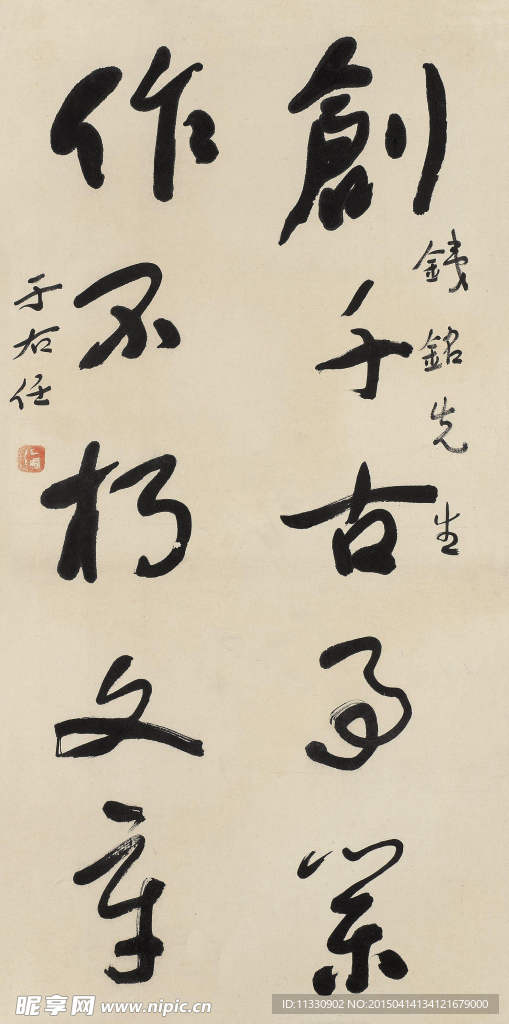 創千古事業
銕銘先生
作不朽文章
于右任
昵享网 www.nipic.cn
ID:11330902 NO:20150414134121679000